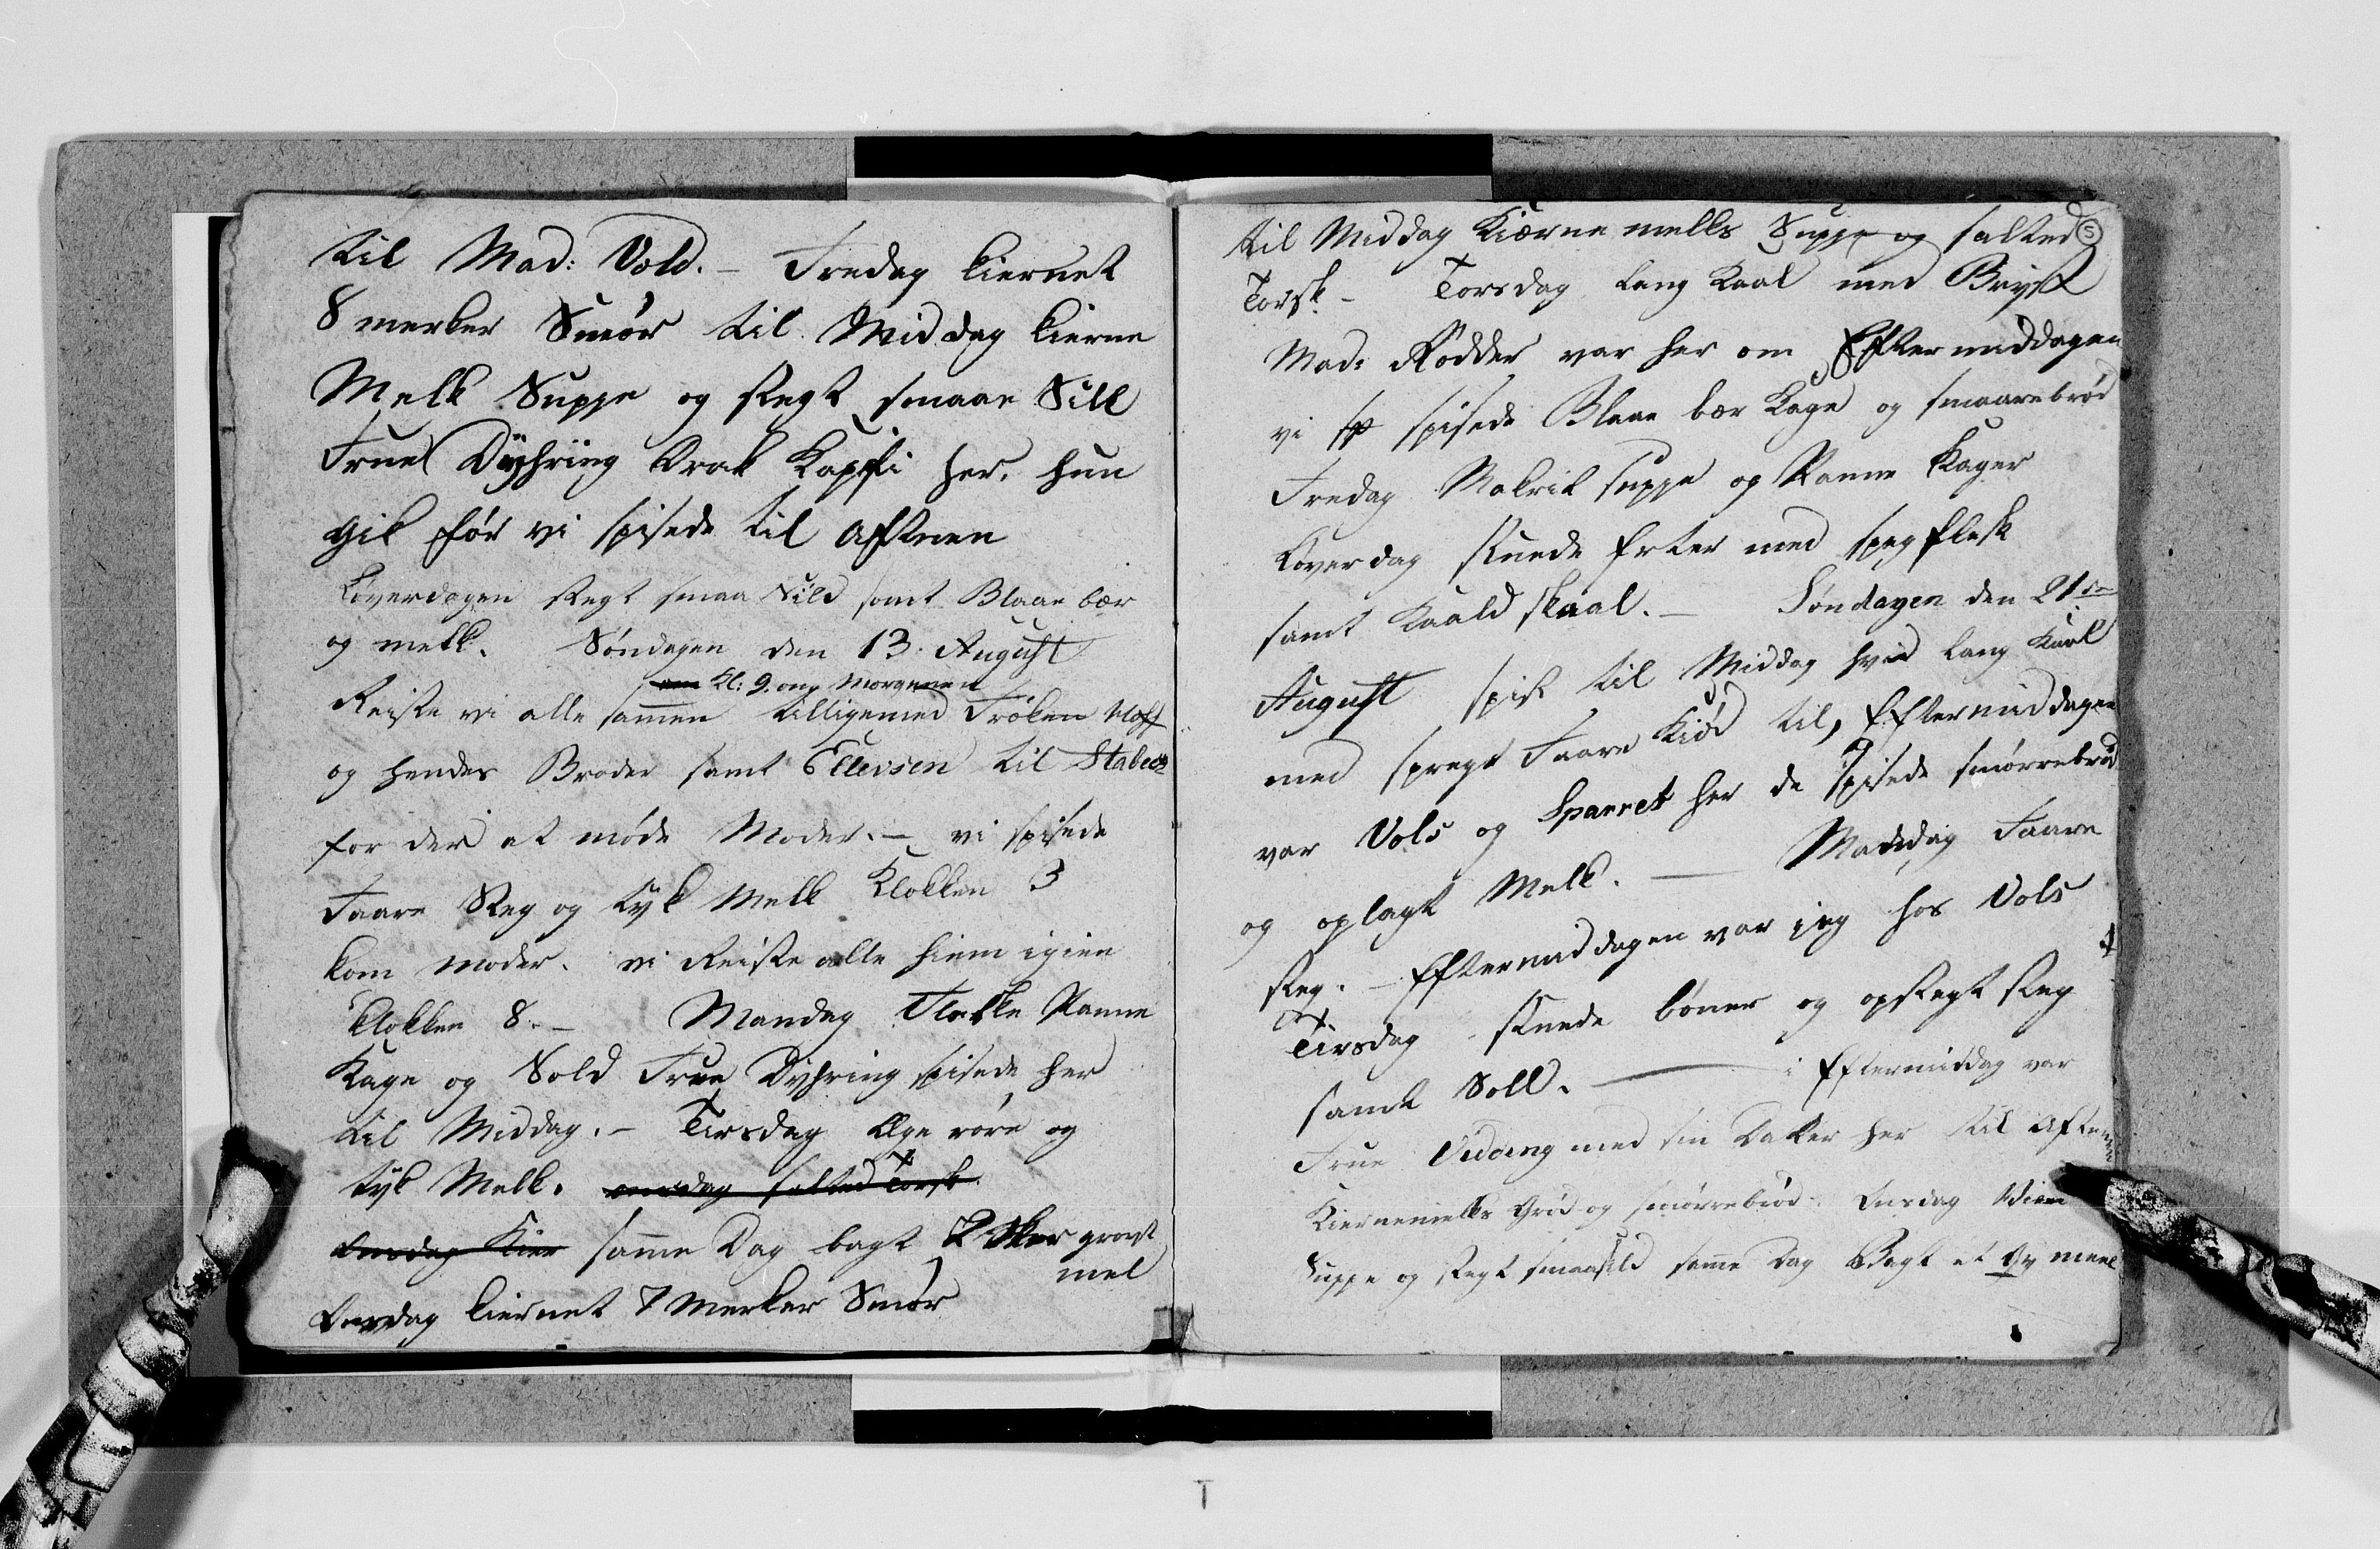 til Mad: Vold. – Fredag kiernet
8 merker Smør til Middag kierne
Melk Suppe og stegt smaae Sild
Frue Dyhring Drak Kaffi her. hun
gik før vi spisede til Aftnen
Løverdagen stegt smaa Sild samt Blaae bær
og melk. Søndagen den 13. August
Kl: 9. om Morgenen
Reiste vi alle sammen tilligemed Frøken
og hendes Broder samt Ellevsen til Stabeck
for der at møde Moder. – vi spisede
Faare Steg og tyk Melk Klokken 3
kom Moder. vi Reiste alle hiem igien
Klokken 8. – Mandag Flotte Panne
Kage og Sold Frue Dyhring spisede her
til Middag. – Tirsdag Ægge røre og
tyk Melk. onsdag salted Torsk
Onsdag Kier samme Dag bagt grovt
mel
Onsdag kiernet 7 Merker Smør
til Middag Kiærnemelks Suppe og salted 5
Torsk. – Torsdag Lang Kaal med Bryst
Mad: Rødder var her om Eftermiddagen
vi sp spisede Blaae bær Kage og smaarebrød
Fredag Makril suppe og Panne Kager
Løverdag stuede Erter med speg flesk
samt Kaald skaal. – Søndagen den 21de
August spist til Middag hvid Lang Kaal
med sprengt Faare Kiød til, Eftermiddagen
var Vols og Sparret her de spisede smørrebrød
og oplagt Melk. — Mandag Faare
Steg. – Eftermiddagen var jeg hos Vols
Tirsdag stuede bøner og opstegt Steg
samt Soll. — i Eftermiddag var
Frue med sin Datter her til Aftnen
Kiernemelks Grød og smørrebrød. Onsdag Viin
Suppe og stegt smaasild samme Dag Bagt et meel